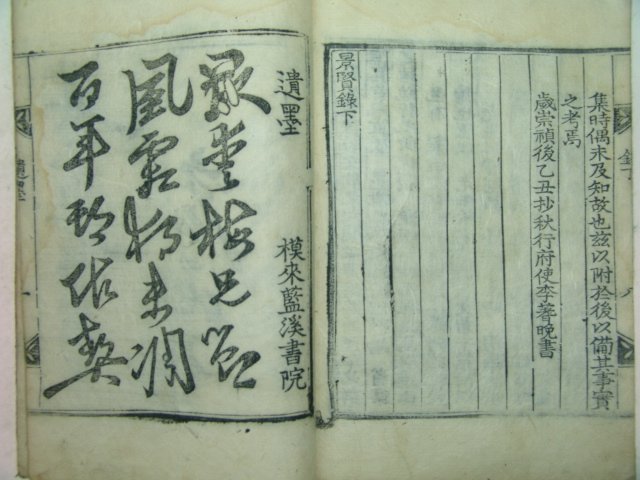 錄下
集時偶未及知故也玆以附於後以備其事實
之考焉
歲崇禎後乙丑抄秋行府使李普晩書
景賢錄下
遺墨　模來藍溪書院
最愛梅兄節
風霜獨未凋
百年契
遺墨